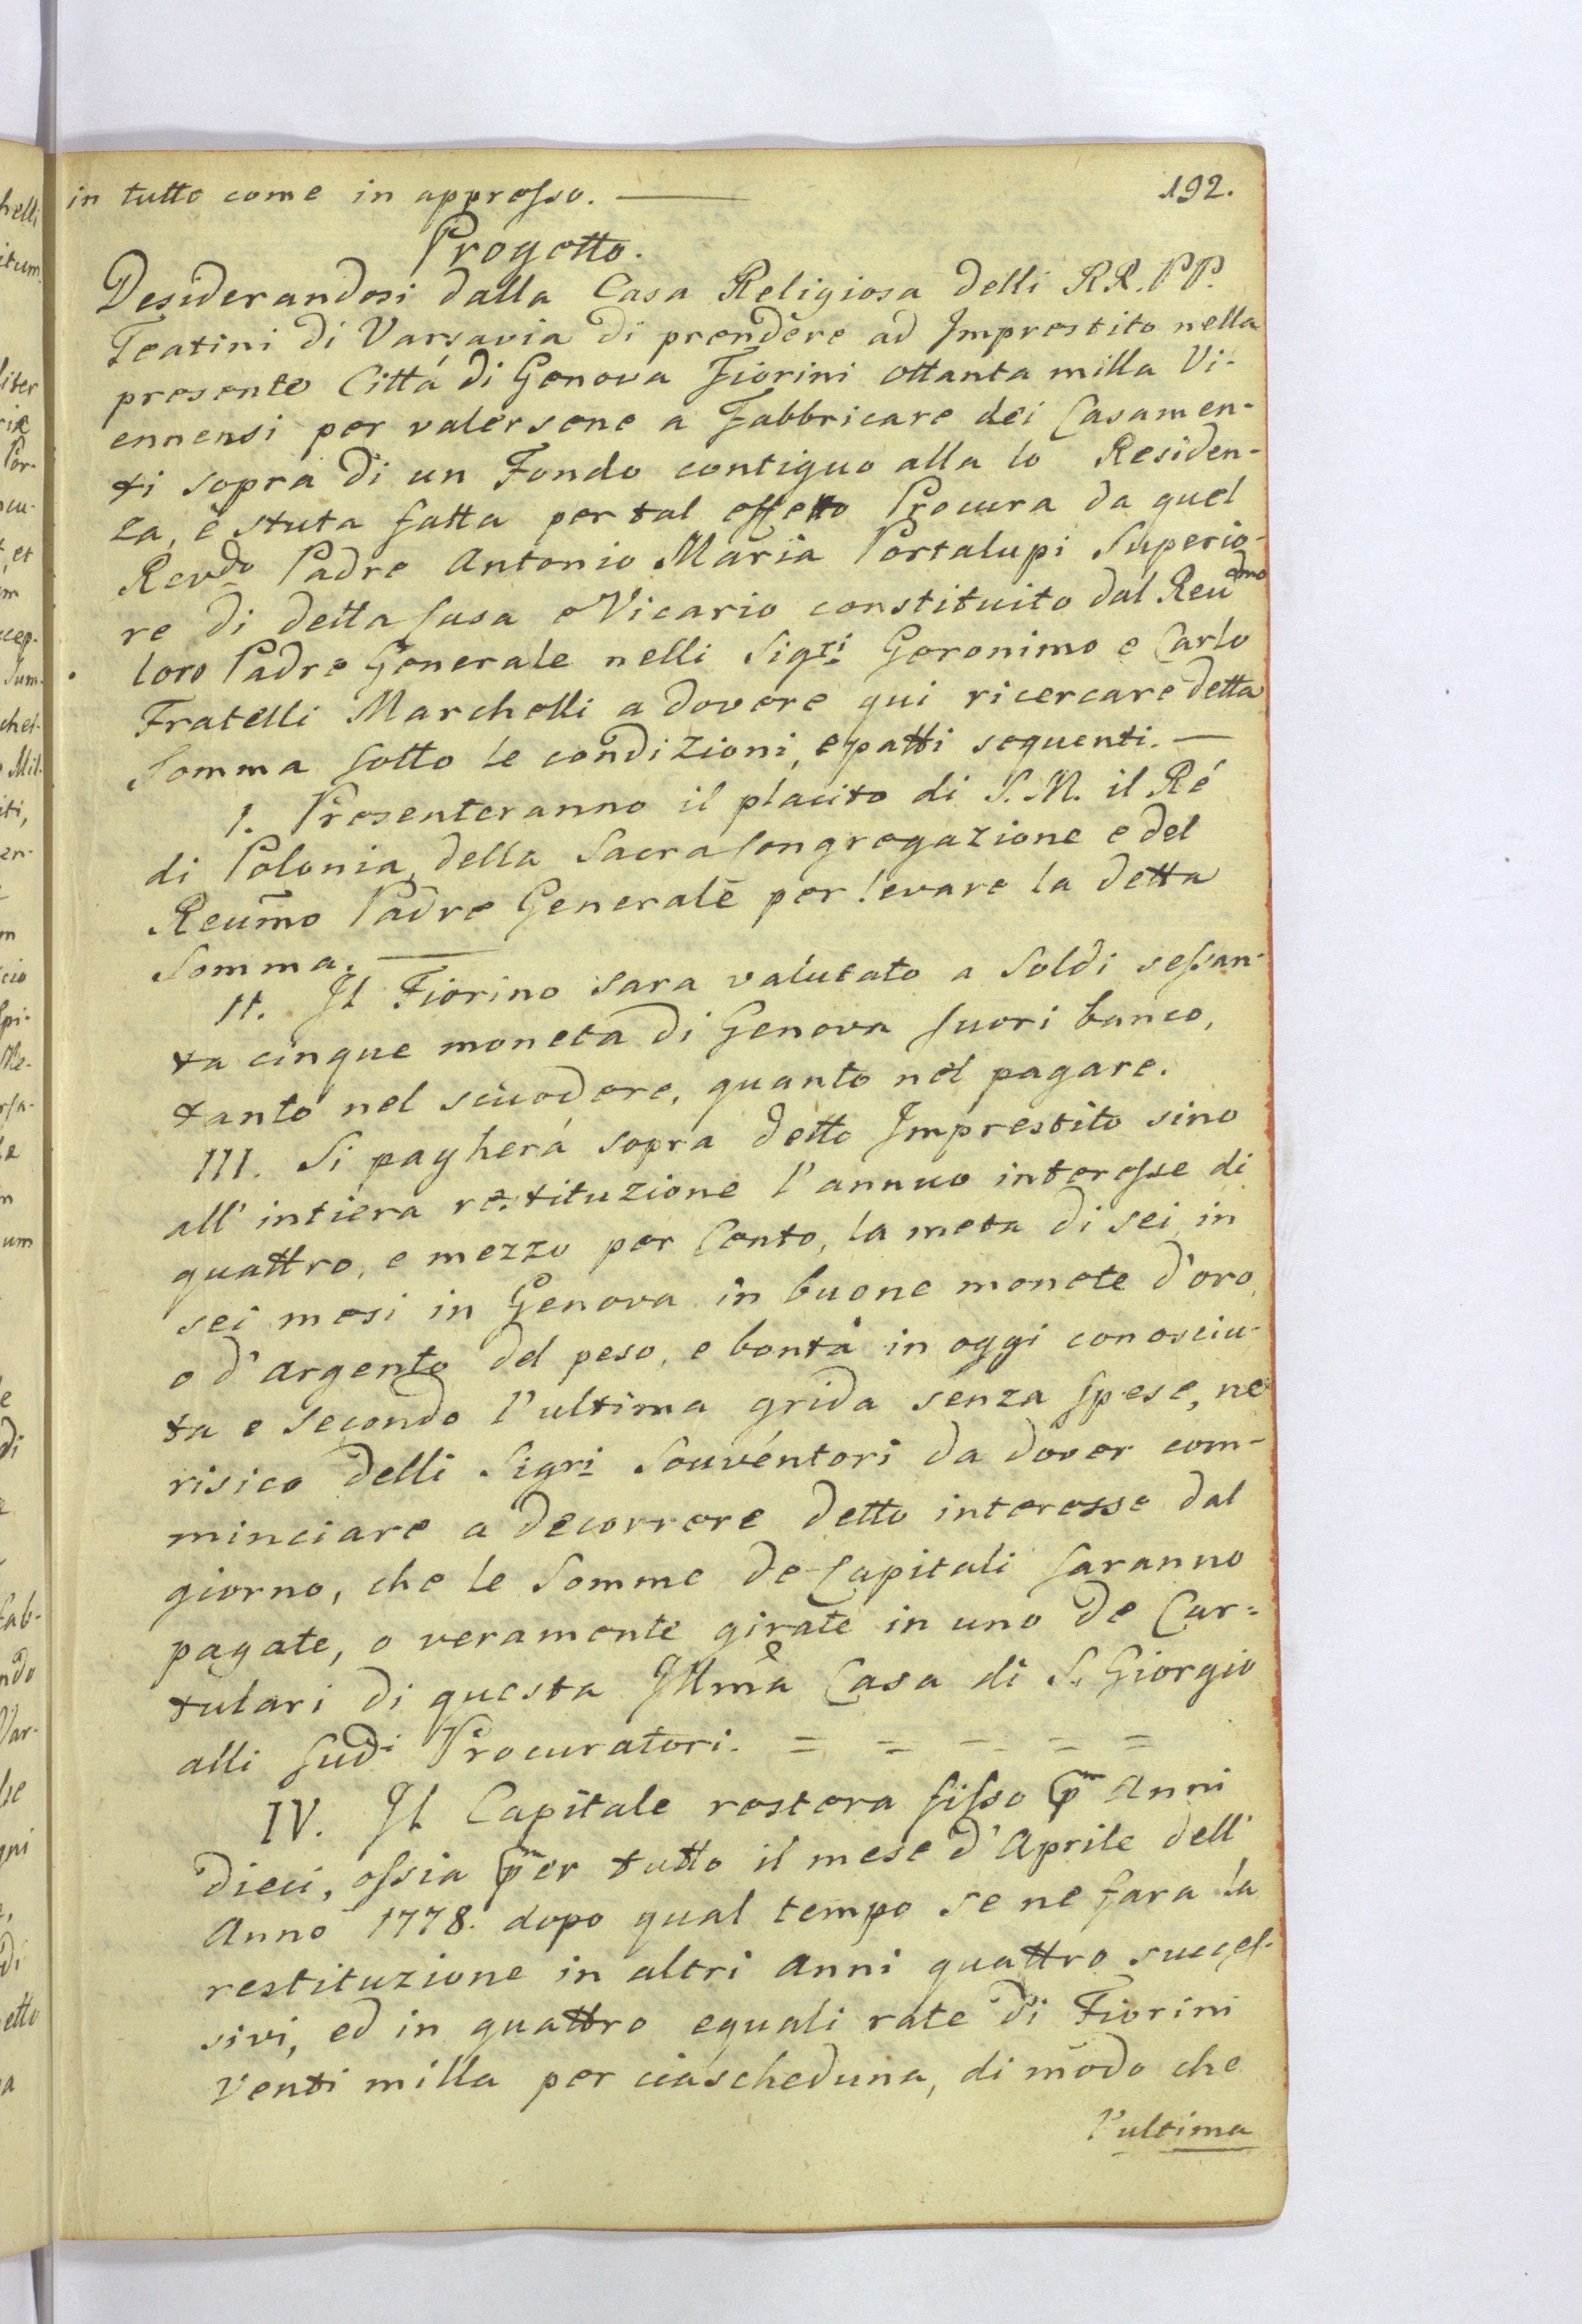 192.
in tutto come in appresso. —
Progetto.
Desiderandosi dalla Casa Religiosa delli RR. PP.
Teatini di Varsavia di prendere ad Imprestito nella
presente Cittá di Genova Fiorini ottanta milla Vi-
ennensi per valersene a Fabbricare dei Casamen-
ti sopra di un Fondo contiguo alla lo Residen-
za, è stata fatta per tal effetto Procura da quel
Revdo Padre Antonio Maria Portalupi Superio-
re di detta Casa e Vicario constituito dal Reudmo
loro Padre Generale nelli Sigri Geronimo e Carlo
Fratelli Marchelli a dovere qui ricercare detta
Somma sotto le condizioni, e patti seguenti. —
I. Presenteranno il placito di S. M. il Ré
di Polonia, della Sacra Congregazione e del
Reum̃o Padre Generale per levare la detta
Somma. —
II. Il Fiorino sara valutato a Soldi sessan-
ta cinque moneta di Genova fuori banco,
tanto nel scuodere, quanto nel pagare.
III. Si pagherá sopra detto Imprestito sino
all' intiera restituzione l'annuo interesse di
quattro, e mezzo per Cento, la meta di sei, in
sei mesi in Genova in buone monete d'oro,
o d'argento del peso, e bontà in oggi conosciu-
ta e secondo l'ultima grida senza spese, ne
risico delli Sigri Souventori da dover com-
minciare a decorrere detto interesse dal
giorno, che le Somme de Capitali saranno
pagate, o veramente girate in uno de Car=
tulari di questa Illm̃a Casa di S. Giorgio
alli sudi Procuratori. = = = = =
IV. Il Capitale restera fisso p Anni
dieci, ossia per tutto il mese d'Aprile dell'
Anno 1778. dopo qual tempo se ne fara la
restituzione in altri anni quattro succes-
sivi, ed in quattro eguali rate di Fiorini
Venti milla per ciascheduna, di modo che
l'ultima